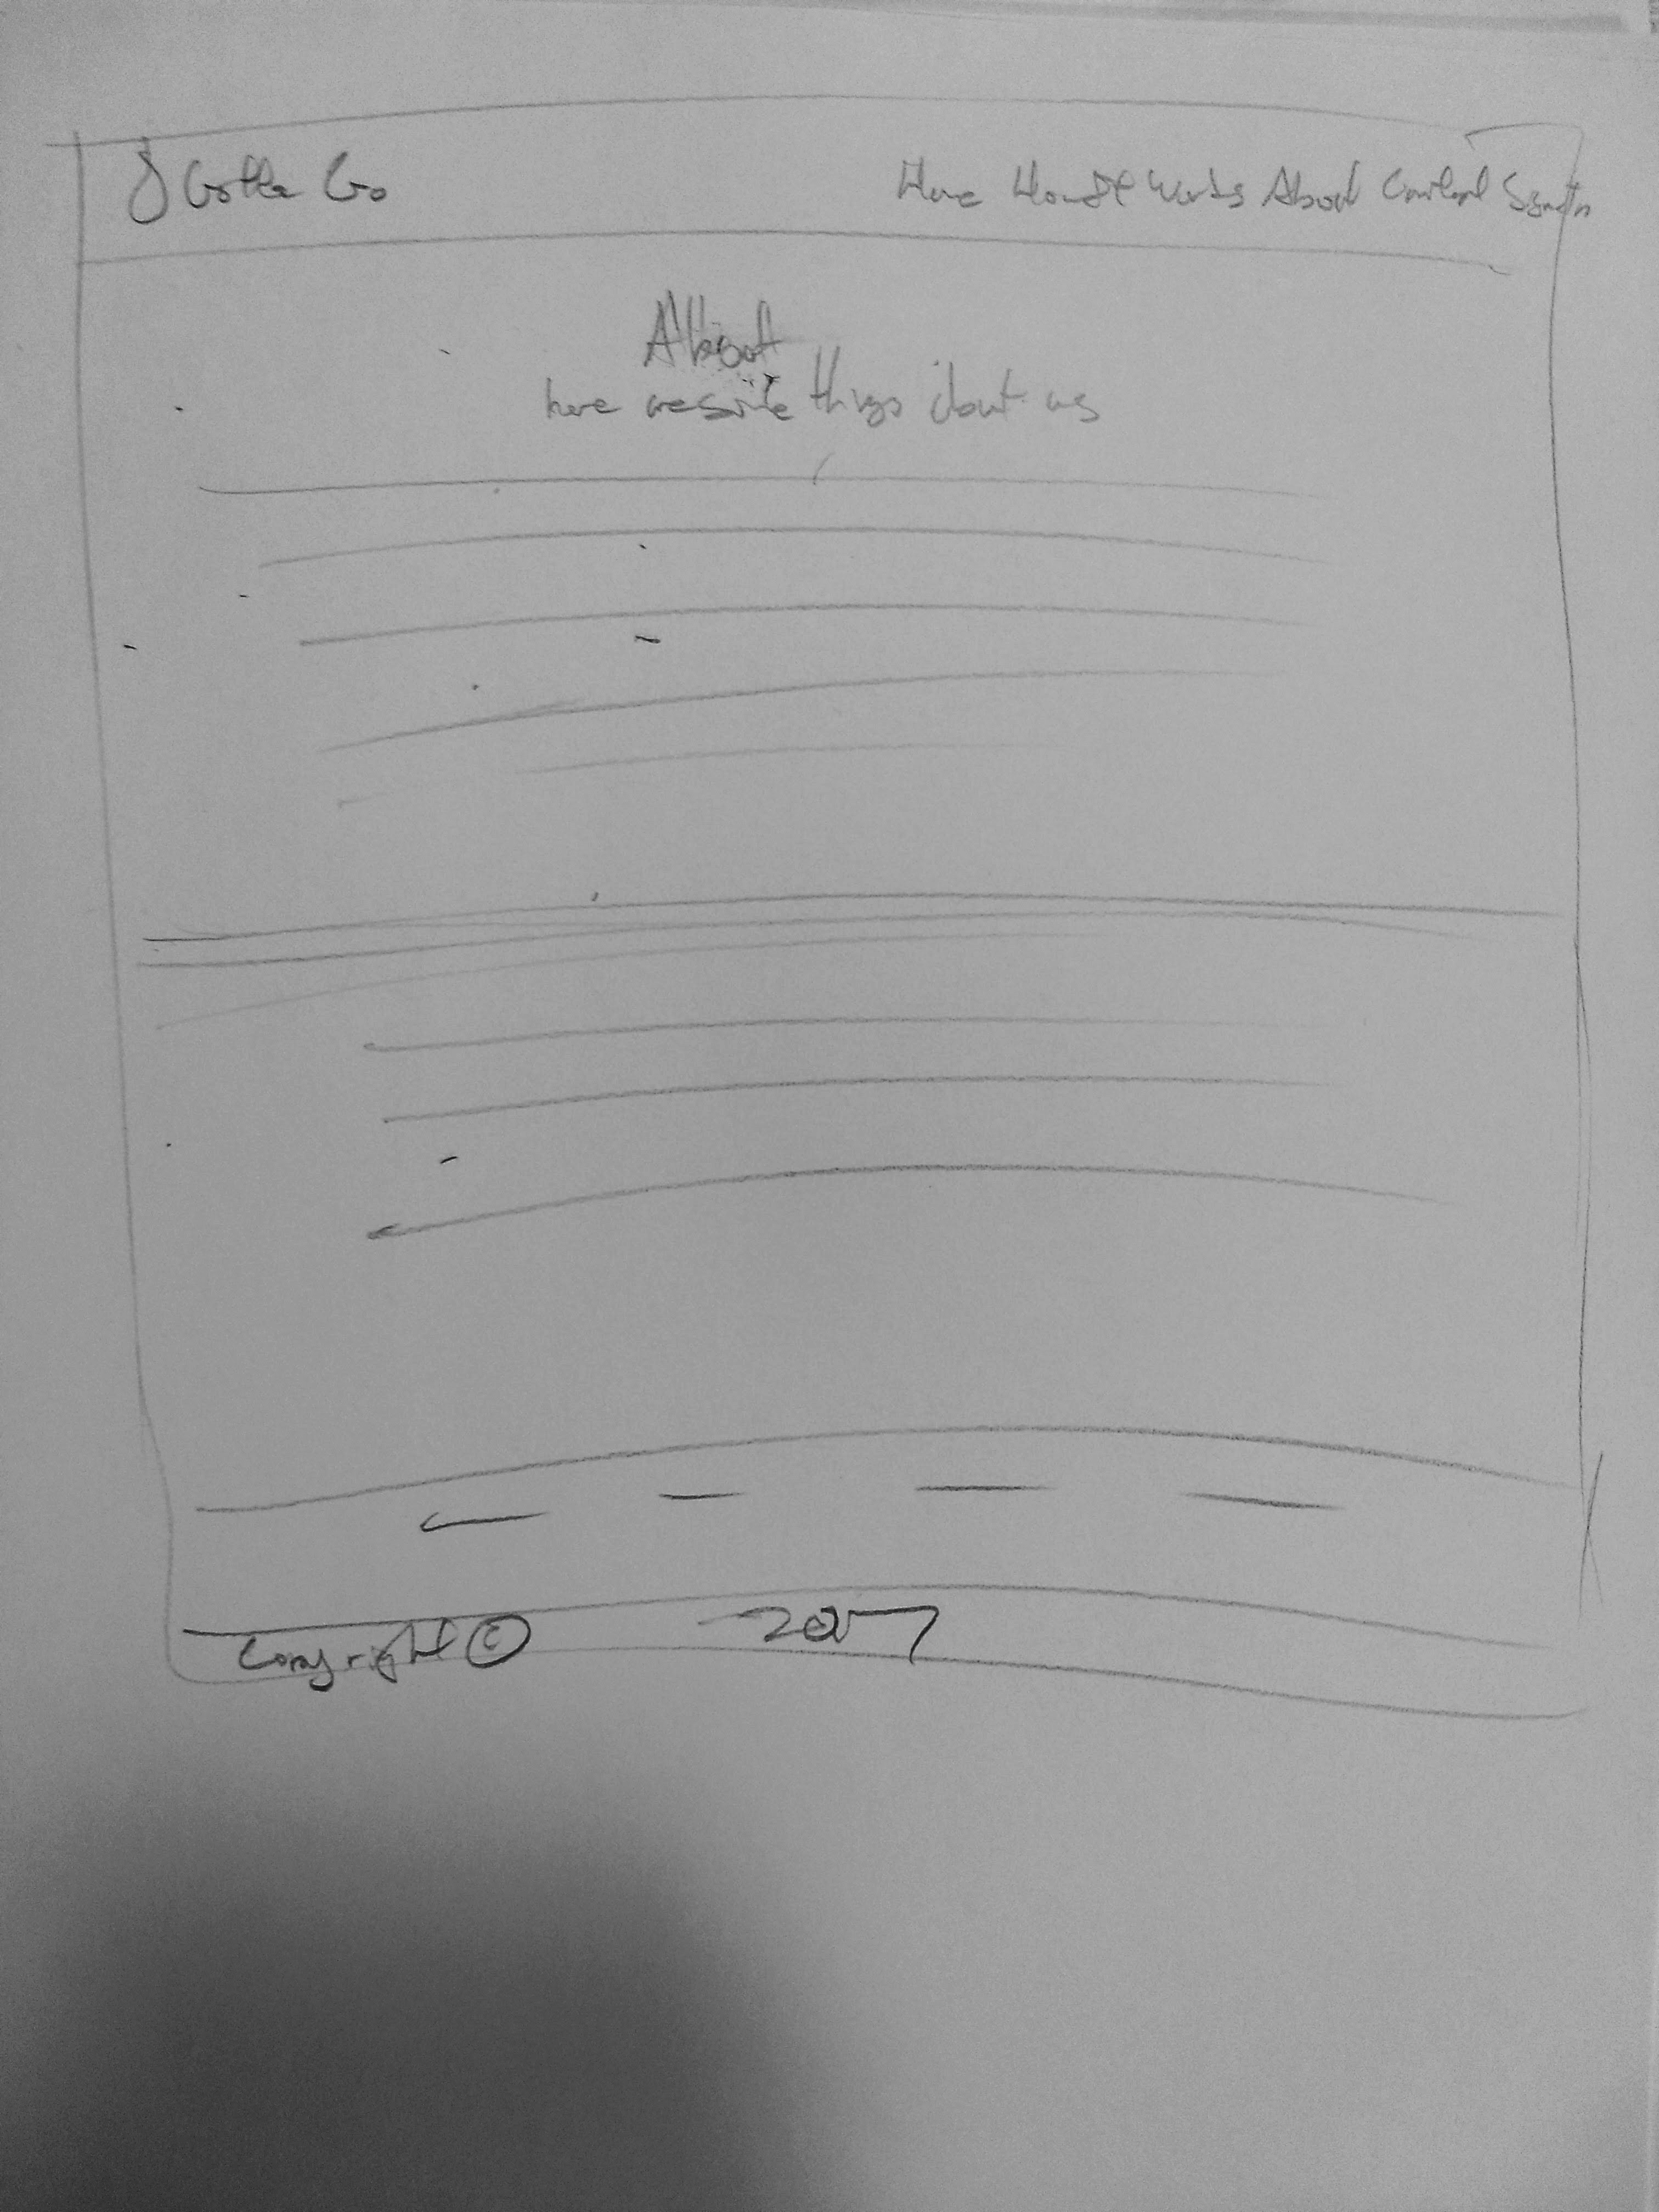 Gotta Go Home How It Works About Contact Sign In
About
here we write things about us
Copyright © 2017